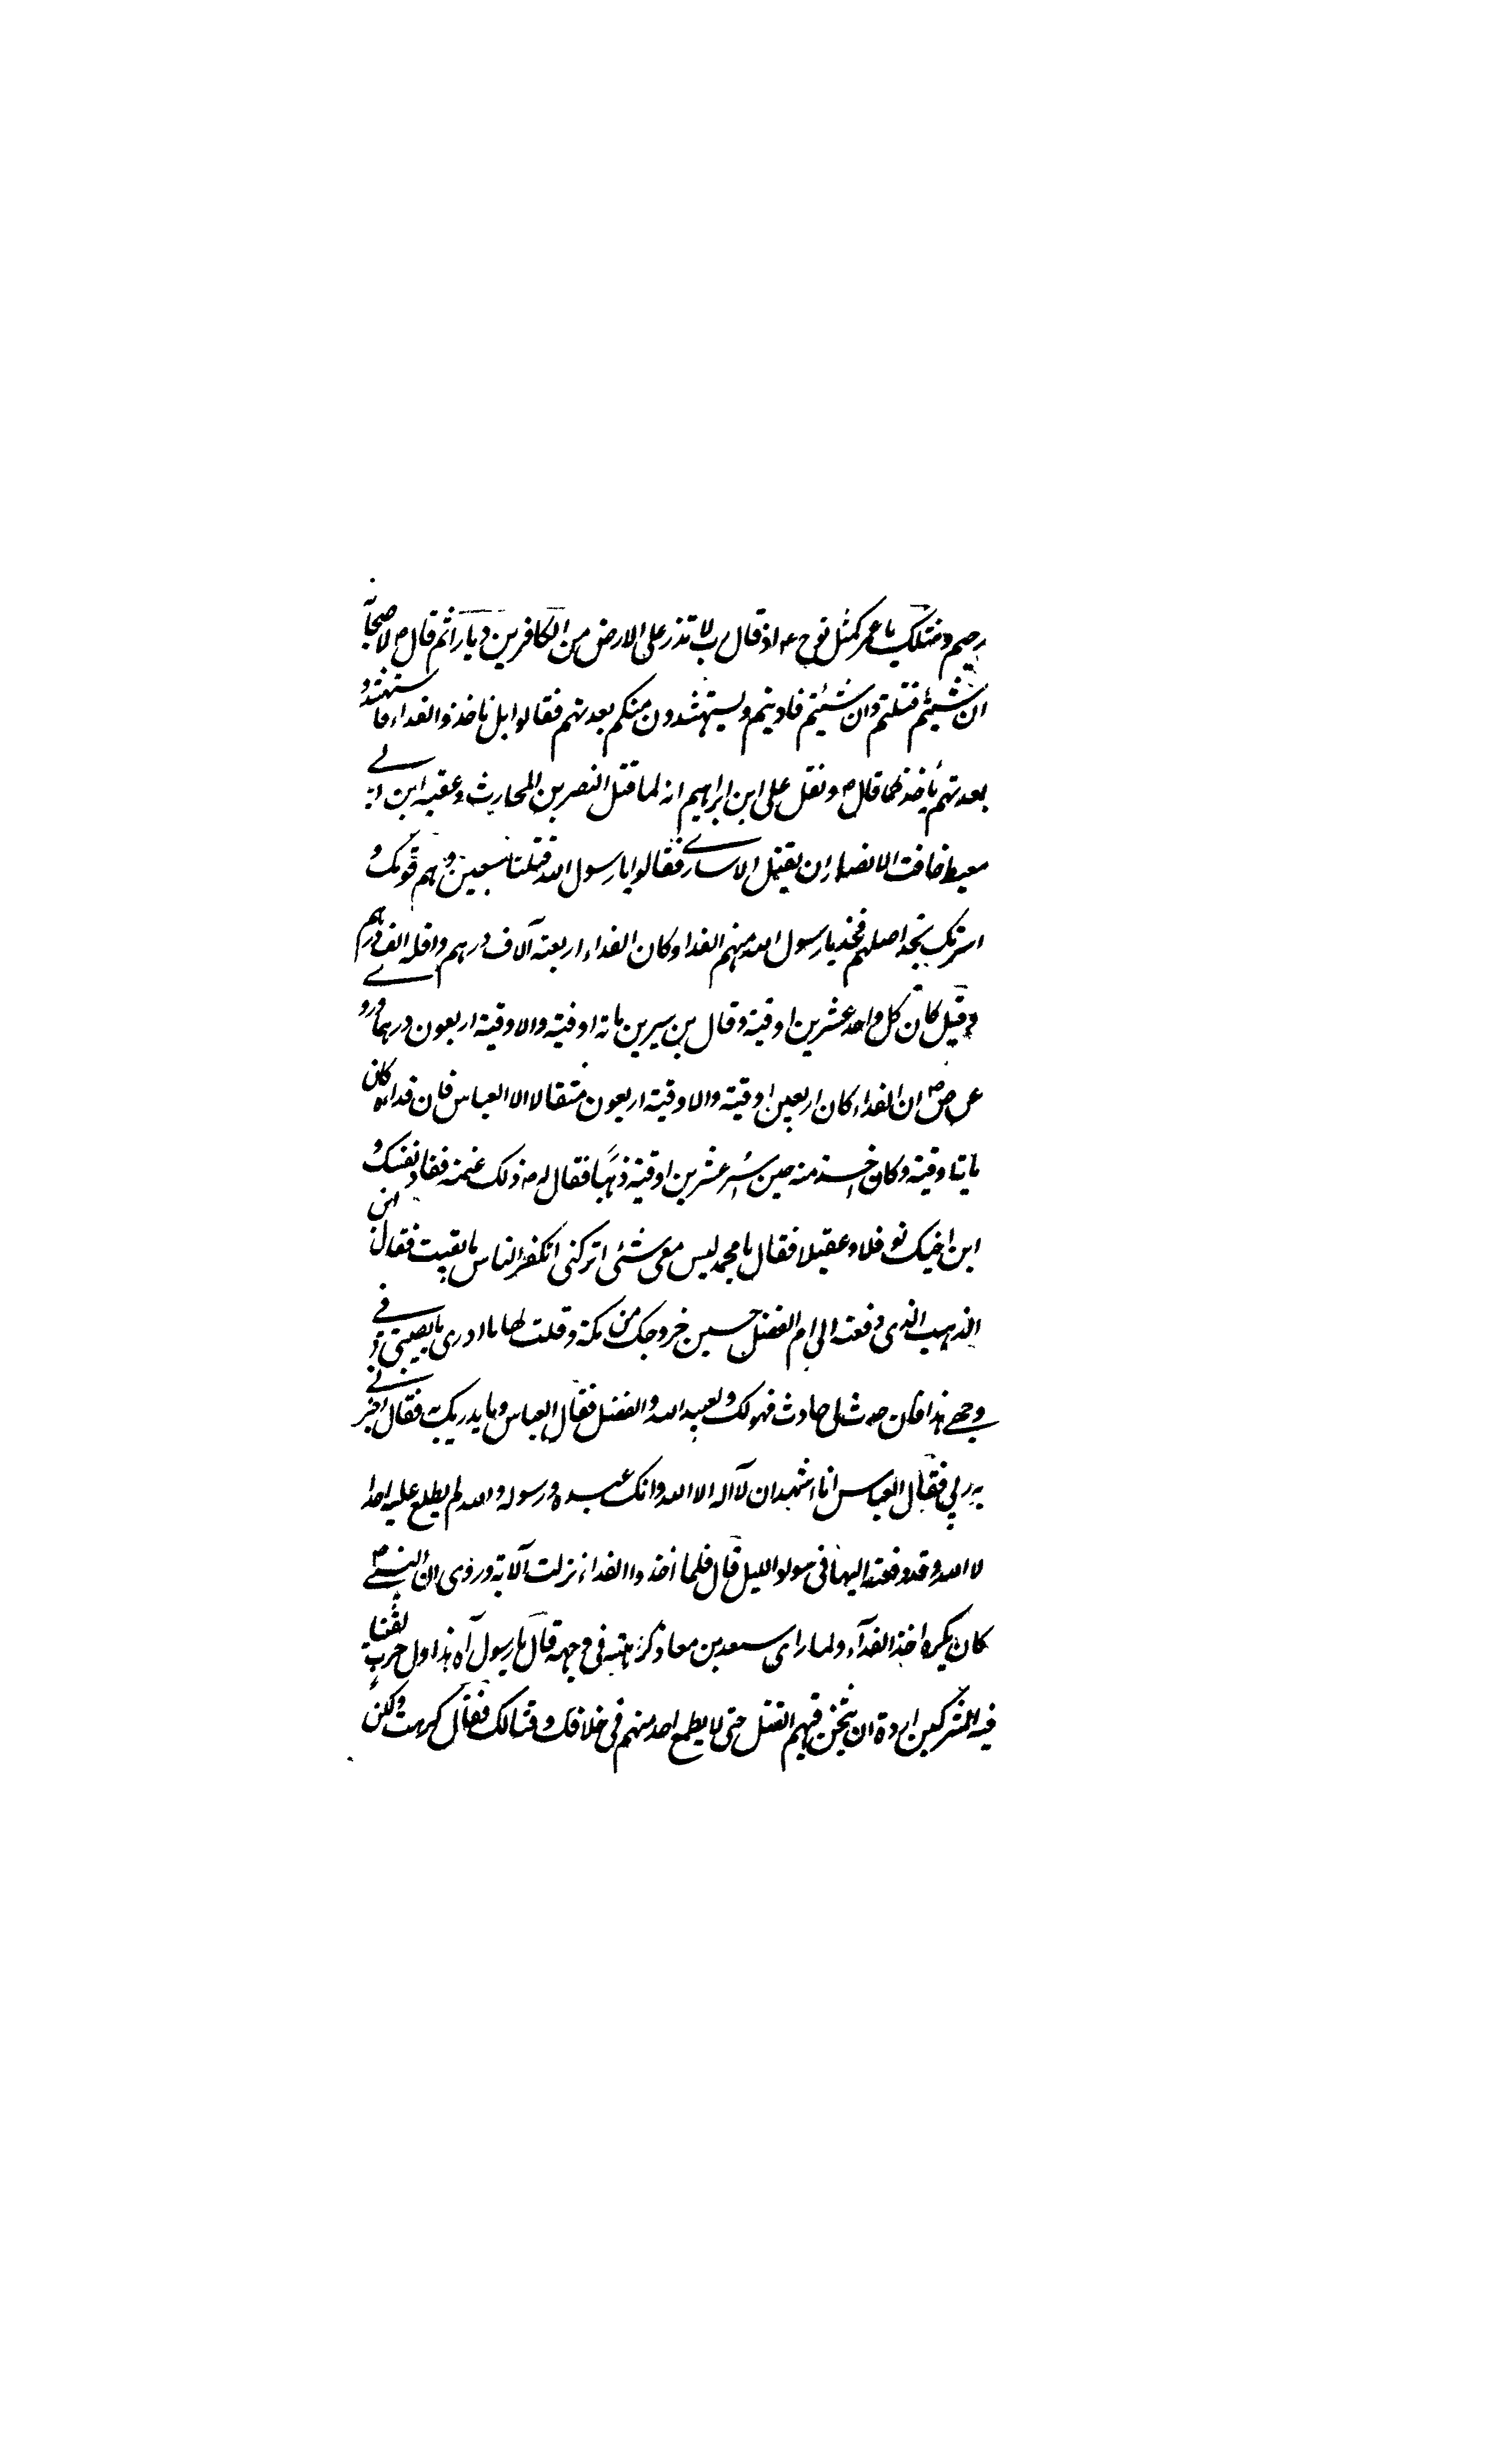 رحيم ومثلك يا عمر كمثل نوح ع اذ قال رب لا تذر على الارض من الكافرين ديارا ثم قال ص لاصحابه
ان شئتم قتلتم وان شئتم فاديتم ويستشهدون منكم بعدتهم فقالوا بل ناخذ الفداء فاستشهدوا
بعدتهم بأخذ كما قال ص ونقل على ابن ابراهيم انه لما قتل النصر بن الحارث وعقبه ابن ابي
معيط خافت الانصار ان يقتل الاسارى فقالوا يا رسول الله قتلنا سبعين وهم قومك و
اسرتك تجد اصلهم فخذ يا رسول الله منهم الفدا وكان الفداء اربعة آلاف درهم واقله الف درهم
وقيل كان كل واحد عشرين اوقية وقال بن سيرين ماته اوقية والاوقية اربعون درهما وروى
عن ص ان الفداء كان اربعين اوقية والاوقية اربعون مثقالا الا العباس فان فداءه كان
مايتا وقية وكان اخذ منه حين اسر عشرين اوقية ذهبا فقال له ص ذلك غنمة ففاد نفسك و
ابن اخيك نوفلا وعقيلا فقال يا محمد ليس معى شئى اتركنى اتكفف الناس ما بقيت فقال اين
الذهب الذى دفعته الى ام الفضل حين خروجك من مكة وقلت لها ما ادرى ما يصيبنى في
وجهى هذا فان حدث بى حادث فهو لك ولعبيد الله والفضل فقال العباس وما يدريك به فقال اخبرنى
به ربى فقال العباس انا اشهد ان لا اله الا الله وانك عبده ورسوله والله لم يطلع عليه احدا
لا الله وقد دفعته اليها فى سواد الليل قال فلما اخذوا الفداء نزلت الآية وروى ان النبى ص
كان يكره اخذ الفداء ولما راى سعد بن معاذ كراهته فى وجهه قال يا رسول اه هذا اول حرب لقينا
فيه المشركين اردة ان يثخن فيهم القتل حتى لا يطمع احد منهم فى خلافك وقتالك فقال كرهت ولكن